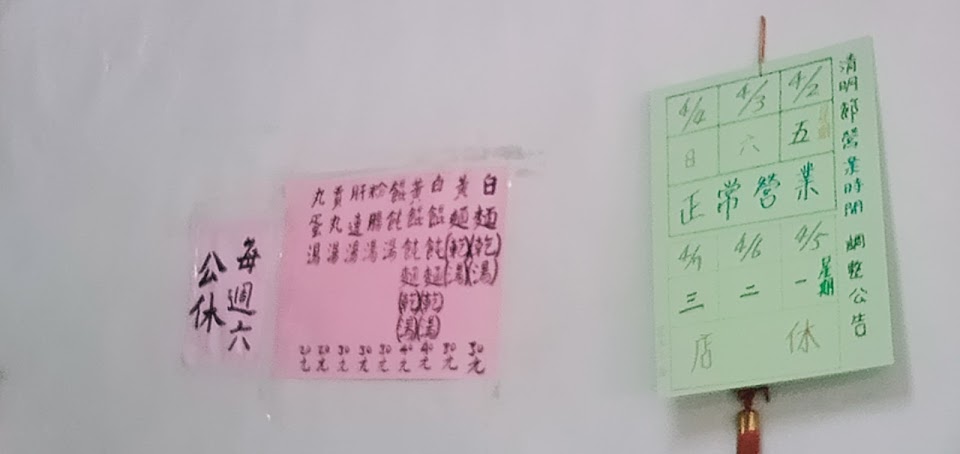 清明節營業時間 調整公告
4/4 4/3 4/2
日 六 星期五
正常營業
4/7 4/6 4/5
三 二 星期一
店休
白麵(乾)(湯) 30元
黃麵(乾)(湯) 30元
白餛飩麵(乾)(湯) 40元
黃餛飩麵(乾)(湯) 40元
餛飩湯 30元
粉腸湯 30元
肝連湯 30元
貢丸湯 20元
丸蛋湯 20元
每週六
公休